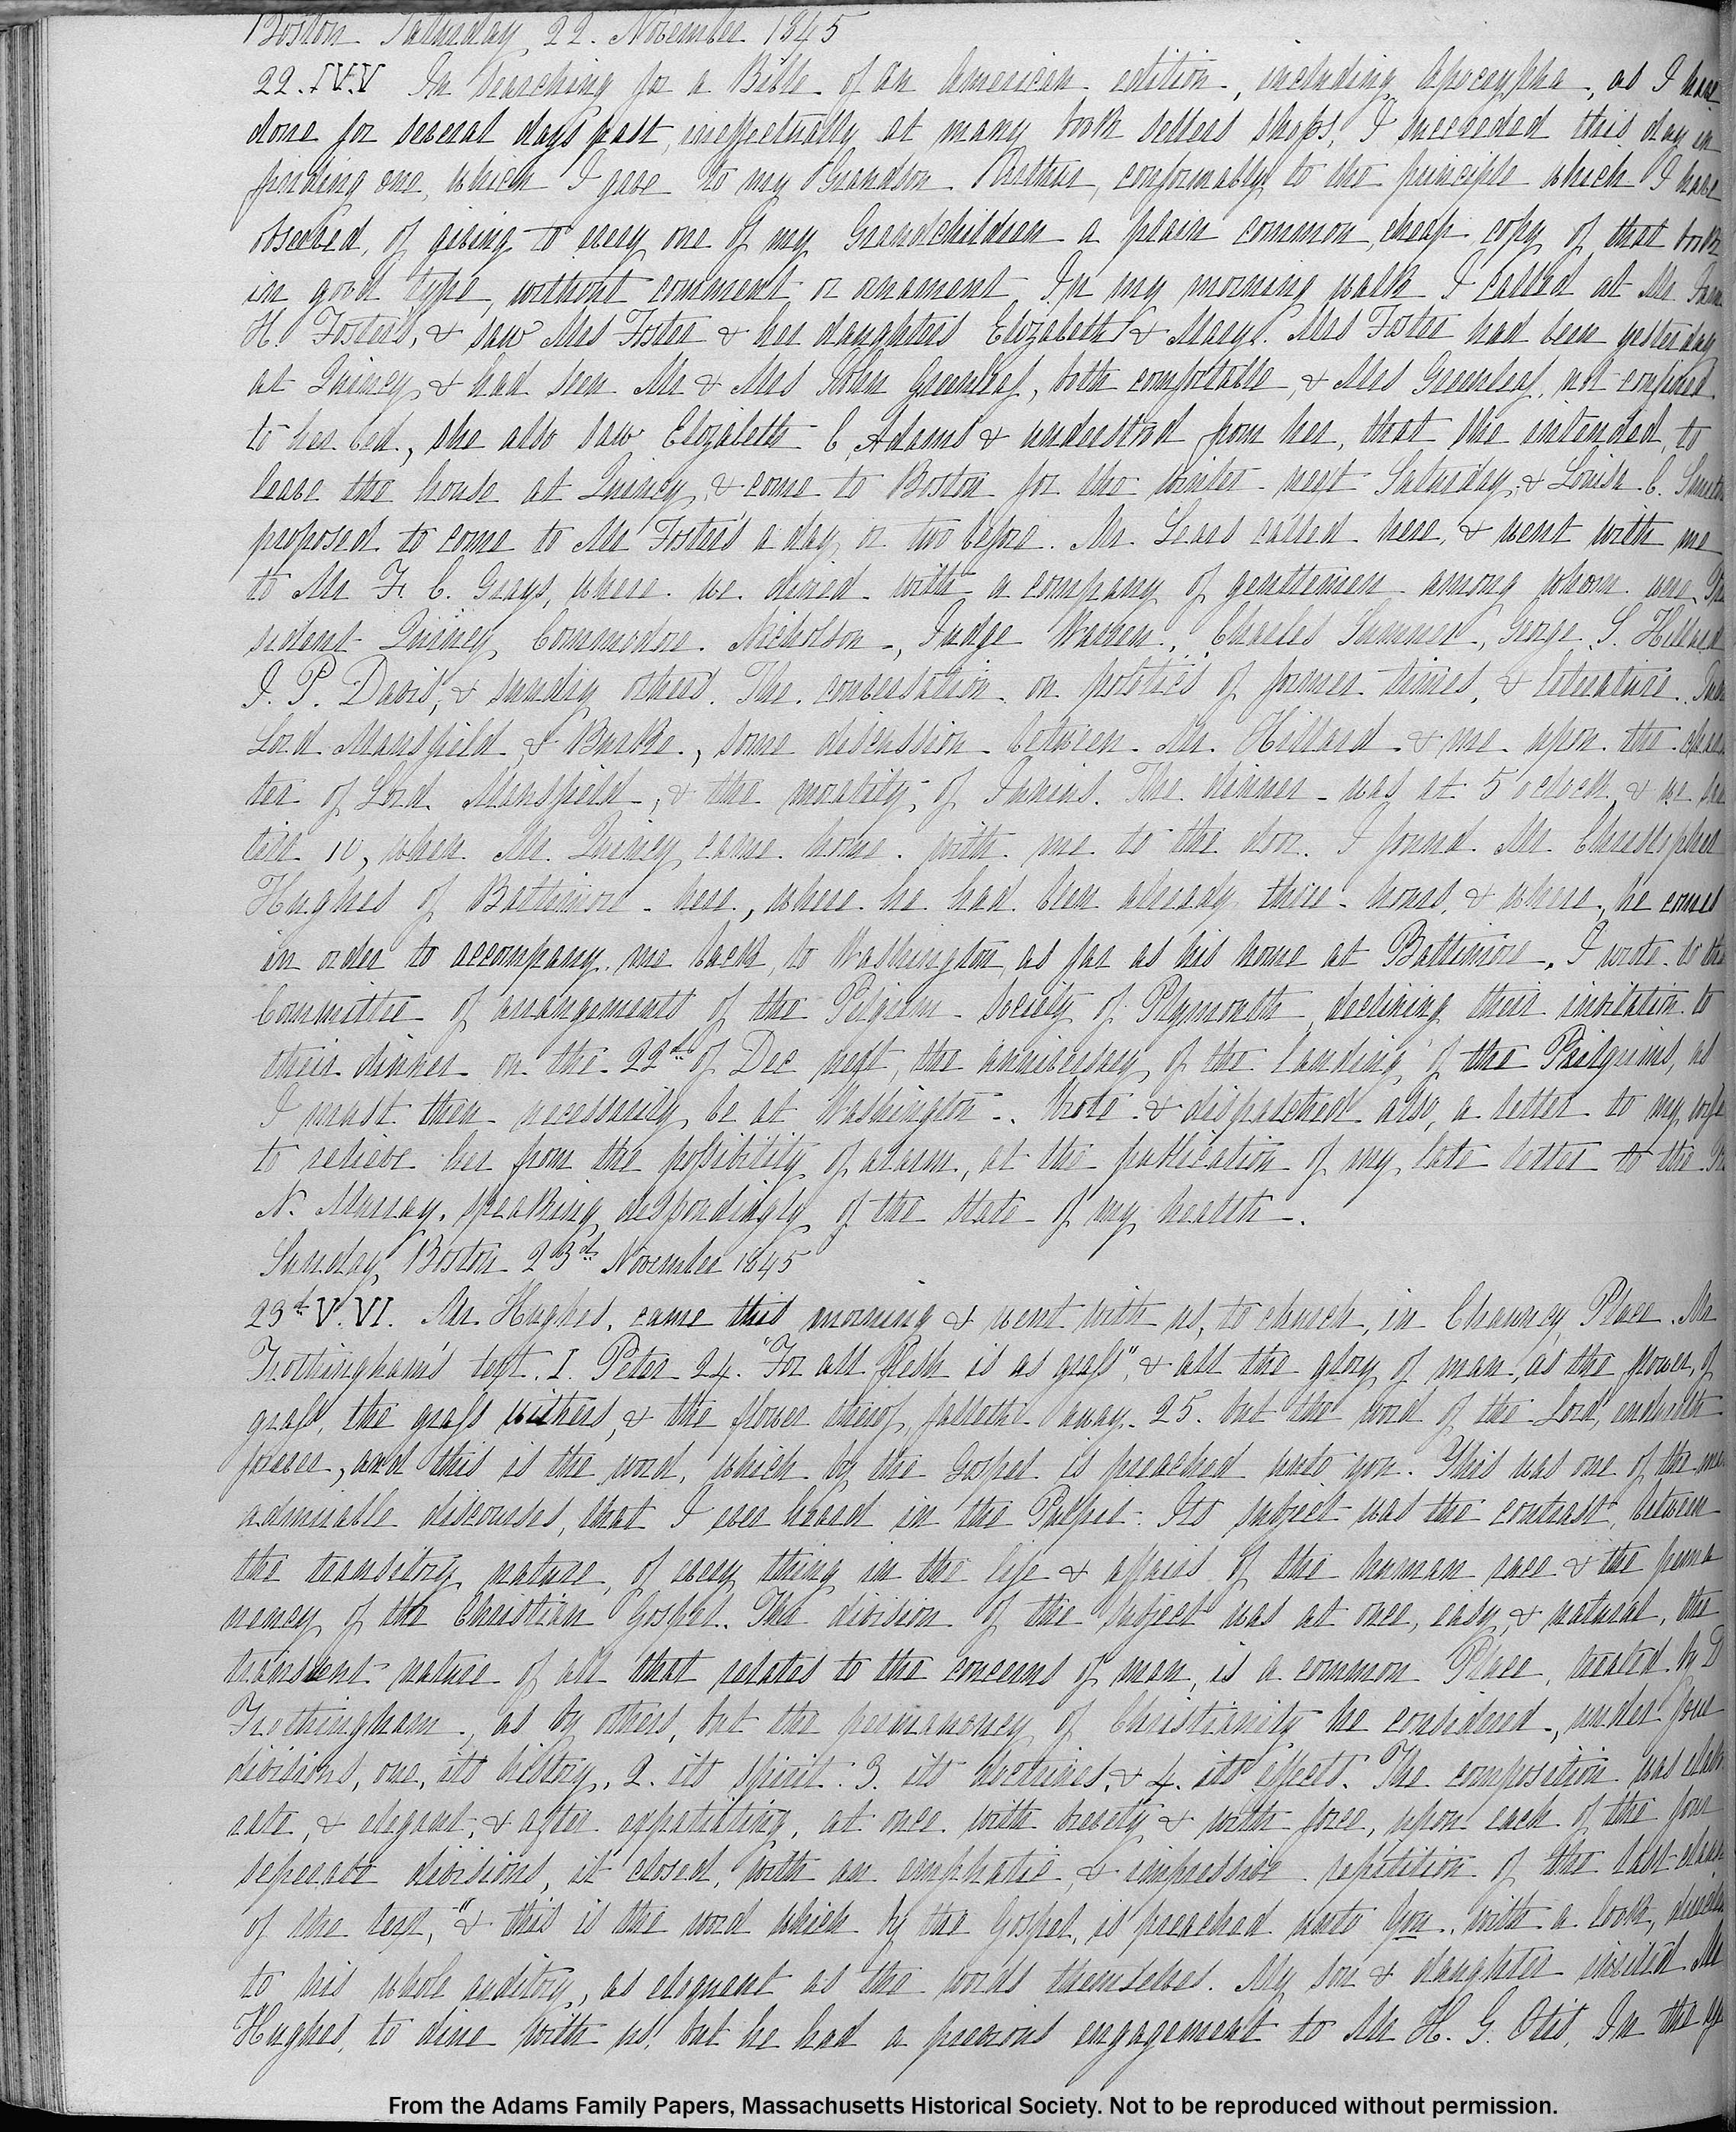 Boston Saturday 22. November 1845
22. IV.V In searching for a Bible of an American edition, including Apocrypha, as I have
done for several days past, ineffectually at many book sellers shops, I succeeded this day in
finding one, which I gave to my Grandson Arthur, conformably to the principle which I have
observed, of giving to every one of my Grandchildren a plain common cheap copy of that book
in good type, without comment or ornament. In my morning walk I called at Mr
H. Foster's, & saw Mrs Foster & her daughters Elizabeth & Mary. Mrs Foster had been yesterday
at Quincy, & had seen Mr & Mrs John Greenleaf, both comfortable, & Mrs Greenleaf, not confined
to her bed, she also saw Elizabeth C. Adams & understood from her, that she intended, to
leave the house at Quincy, & come to Boston for the winter next Saturday, & Louisa C.
proposed to come to Mr Foster's a day or two before. Mr. Sears called here, & went with me
to Mr F. C. Grays, where we dined with a company of gentlemen among whom were
sident Quincy, Commodore Nicholson, Judge Warren, Charles Sumner, George S. Hillard
I. P. Davis, & sundry others. The conversation on politics of former times, & literature.
Lord Mansfield, & Burke, some discussion between Mr. Hillard & me upon the charac
ter of Lord Mansfield, & the morality of Junius. The dinner was at 5 o clock, & we
till 10, when Mr. Quincy came home with me to the door. I found Mr. Christopher
Hughes of Baltimore here, where he had been already three hours, & where he comes
in order to accompany me back to Washington as far as his home at Baltimore. I wrote to the
Committee of arrangements of the Pilgrim Society of Plymouth declining their invitation to
their dinner on the 22d of Dec next, the anniversary of the landing of the Pilgrims, as
I must then necessarily be at Washington. Wrote & dispatched also, a letter to my wife
to relieve her from the possibility of alarm, at the publication of my late letter to the
N. Murray, speaking despondingly of the state of my health.
Sunday Boston 23d November 1845
23d V.VI. Mr. Hughes, came this morning & went with us, to church, in Chauncy Place. Mr
Frothingham's text. I. Peter 24. "For all flesh is as grass", & all the glory of man, as the flower, of
grass, the grass withers, & the flower thereof, falleth away. 25. but the word of the Lord, endureth
forever, and this is the word, which by the Gospel is preached unto you. This was one of the
admirable discourses, that I ever heard in the Pulpit. Its subject was the contrast, between
the transitory nature, of every thing in the life & affairs of the human race & the perma
nency of the Christian Gospel. The division of the subject was at once, easy, & natural, the
transient nature of all that relates to the concerns of man, is a common Place, treated by D
Frothingham, as by others, but the permanency of Christianity he considered, under four
divisions, one, its history, 2. its spirit. 3. its doctrines, & 4. its effects. The composition was elabo
rate, & elegant, & after expatiating, at once with brevity & with force, upon each of the four
seperate divisions, it closed, with an emphatic, & impressive repetition of the last clause
of the text, "& this is the word which by the Gospel, is preached unto you. with a look,
to his whole auditory, as eloquent as the words themselves. My son & daughter invited Mr
Hughes, to dine with us, but he had a previous engagement to Mr H. G. Otis. In the
From the Adams Family Papers, Massachusetts Historical Society. Not to be reproduced without permission.